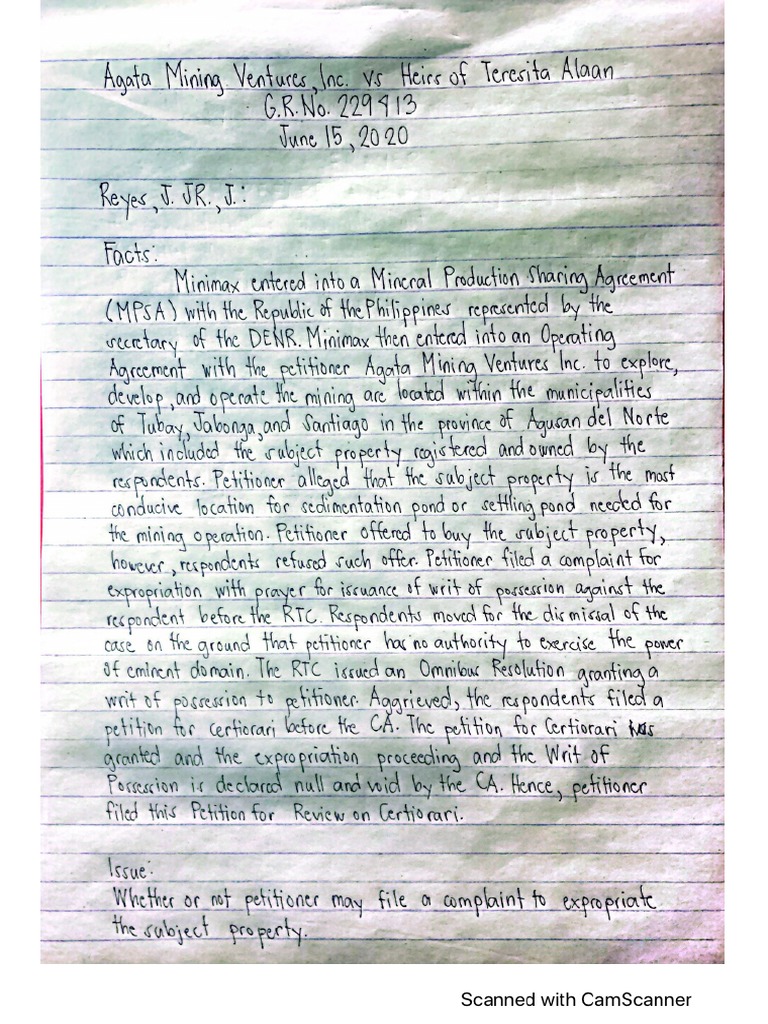 Agata Mining Ventures, Inc. vs Heirs of Teresita Alaan
G.R. No. 229413
June 15, 2020
Reyes, J. JR., J.:
Facts:
Minimax entered into a Mineral Production Sharing Agreement
(MPSA) with the Republic of the Philippines represented by the
secretary of the DENR. Minimax then entered into an Operating
Agreement with the petitioner Agata Mining Ventures Inc. to explore,
develop, and operate the mining are located within the municipalities
of Tubay, Jabonga, and Santiago in the province of Agusan del Norte
which included the subject property registered and owned by the
respondents. Petitioner alleged that the subject property is the most
conducive location for sedimentation pond or settling pond needed for
the mining operation. Petitioner offered to buy the subject property,
however, respondents refused such offer. Petitioner filed a complaint for
expropriation with prayer for issuance of writ of possession against the
respondent before the RTC. Respondents moved for the dismissal of the
case on the ground that petitioner has no authority to exercise the power
of eminent domain. The RTC issued an Omnibus Resolution granting a
writ of possession to petitioner. Aggrieved, the respondents filed a
petition for certiorari before the CA. The petition for Certiorari was
granted and the expropriation proceeding and the Writ of
Possession is declared null and void by the CA. Hence, petitioner
filed this Petition for Review on Certiorari.
Issue:
Whether or not petitioner may file a complaint to expropriate
the subject property.
Scanned with CamScanner